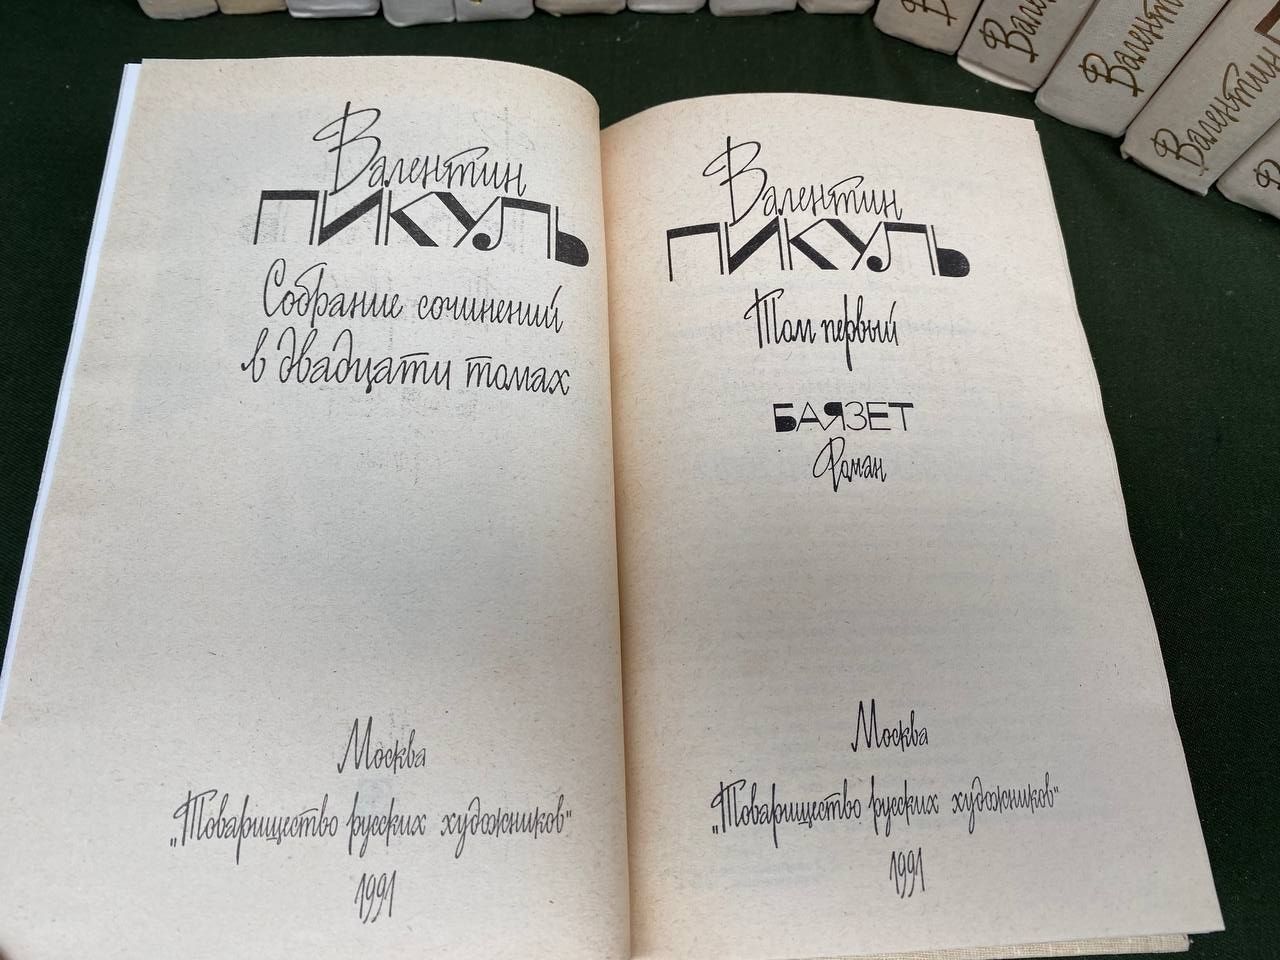 Валентин
ПИКУЛЬ
Собрание сочинений
в двадцати томах
Москва
„Товарищество русских художников"
1991
Валентин
ПИКУЛЬ
Том первый
БАЯЗЕТ
Роман
Москва
„Товарищество русских художников"
1991
Валентин
Валентин
Валентин